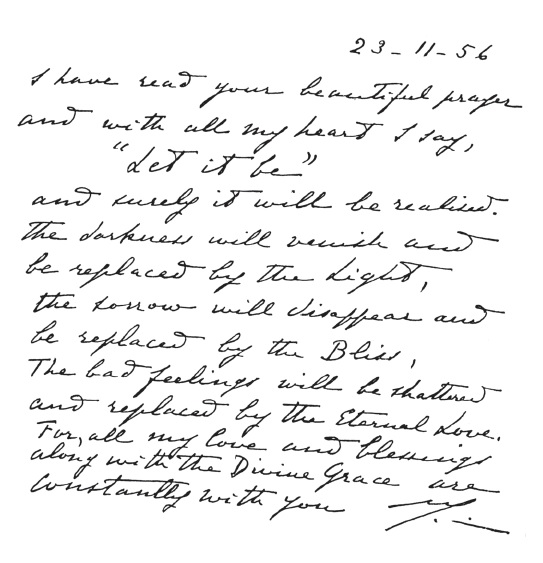 23-11-56
I have read your beautiful prayer
and with all my heart I say,
"Let it be"
and surely it will be realised.
The darkness will vanish and
be replaced by the Light,
the sorrow will disappear and
be replaced by the Bliss,
The bad feelings will be shattered
and replaced by the Eternal Love.
For, all my love and blessings
along with the Divine Grace are
constantly with you